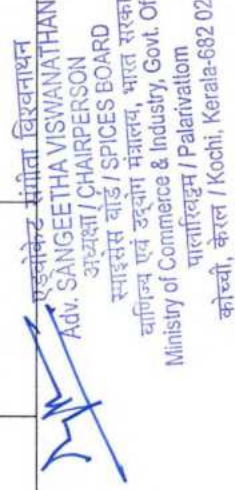 एडवोकेट संगीता विश्वनाथन
Adv. SANGEETHA VISWANATHAN
अध्यक्षा / CHAIRPERSON
स्पाइसेस बोर्ड / SPICES BOARD
वाणिज्य एवं उद्योग मंत्रालय, भारत सरका
Ministry of Commerce & Industry, Govt. Of
पालारिवट्टम / Palarivattom
कोच्ची, केरल / Kochi, Kerala-682 02